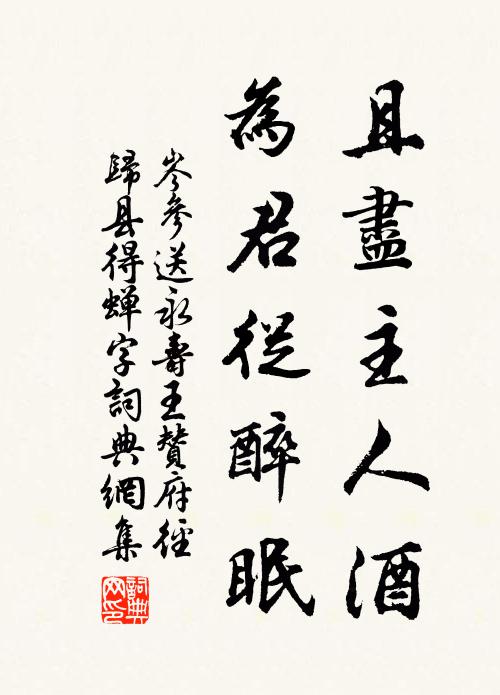 且盡主人酒
為君從醉眠
岑參送永壽王贊府徑
歸县得蝉字詞典網集
詞典網印